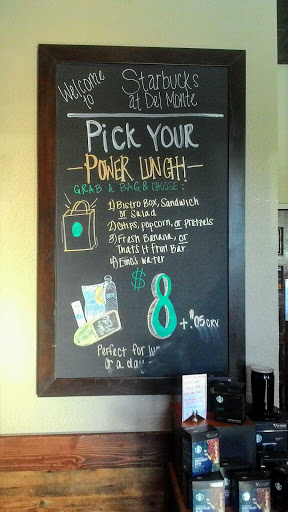 Welcome to
Starbucks
at Del Monte
PICK YOUR
-POWER LUNCH!-
GRAB A BAG & CHOOSE:
1) Bistro Box, Sandwich
or Salad
2) Chips, popcorn, or pretzels
3) Fresh Banana, or
That's It Fruit Bar
4) Ethos Water
$8
+ .05 CRV
Perfect for
or a day